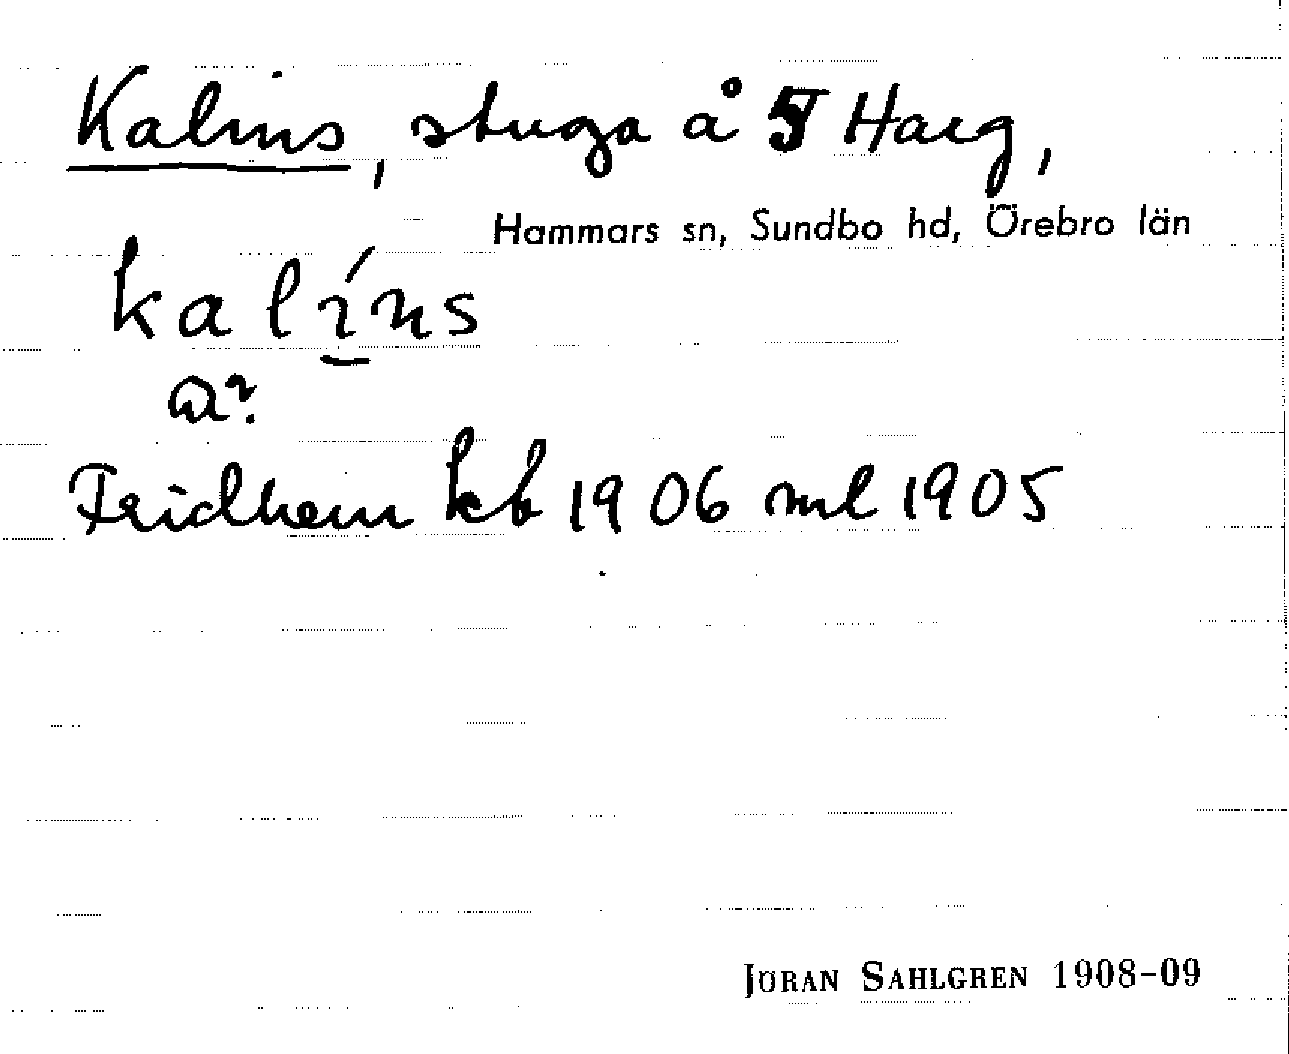 Kalins, stuga å Harg,
Hammars sn, Sundbo hd, Örebro län
kalíns
a?
Fridhem kb 1906 ml 1905
JÖRAN SAHLGREN 1908-09